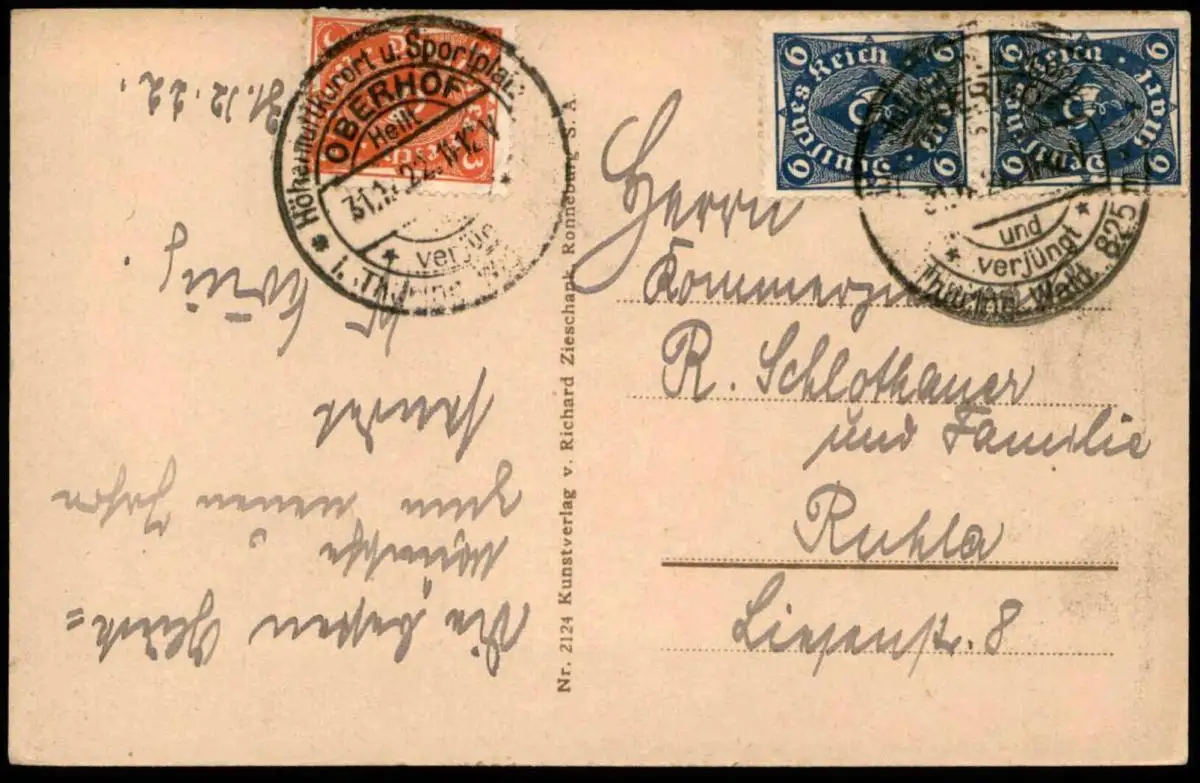 31.12.22.
Die besten Glück=
wünsche
zum neuen Jahre
sendet
Höhenluftkurort u. Sportplatz
OBERHOF
Heilt
31.12.22.11-12V
verjüngt
i. Thüring. Wald
Deutsches Reich
3
Nr. 2124 Kunstverlag v. Richard Zieschank, Ronneburg S. A.
Deutsches Reich
6
Deutsches Reich
6
OBERHOF
und
verjüngt
Thüring. Wald 825 m
Herrn
R. Schlothauer
und Familie
Ruhla
Liesenstr. 8